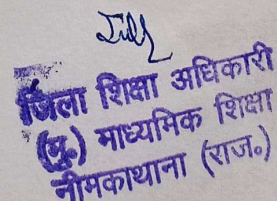 जिला शिक्षा अधिकारी
(मु०) माध्यमिक शिक्षा
नीमकाथाना (राज०)